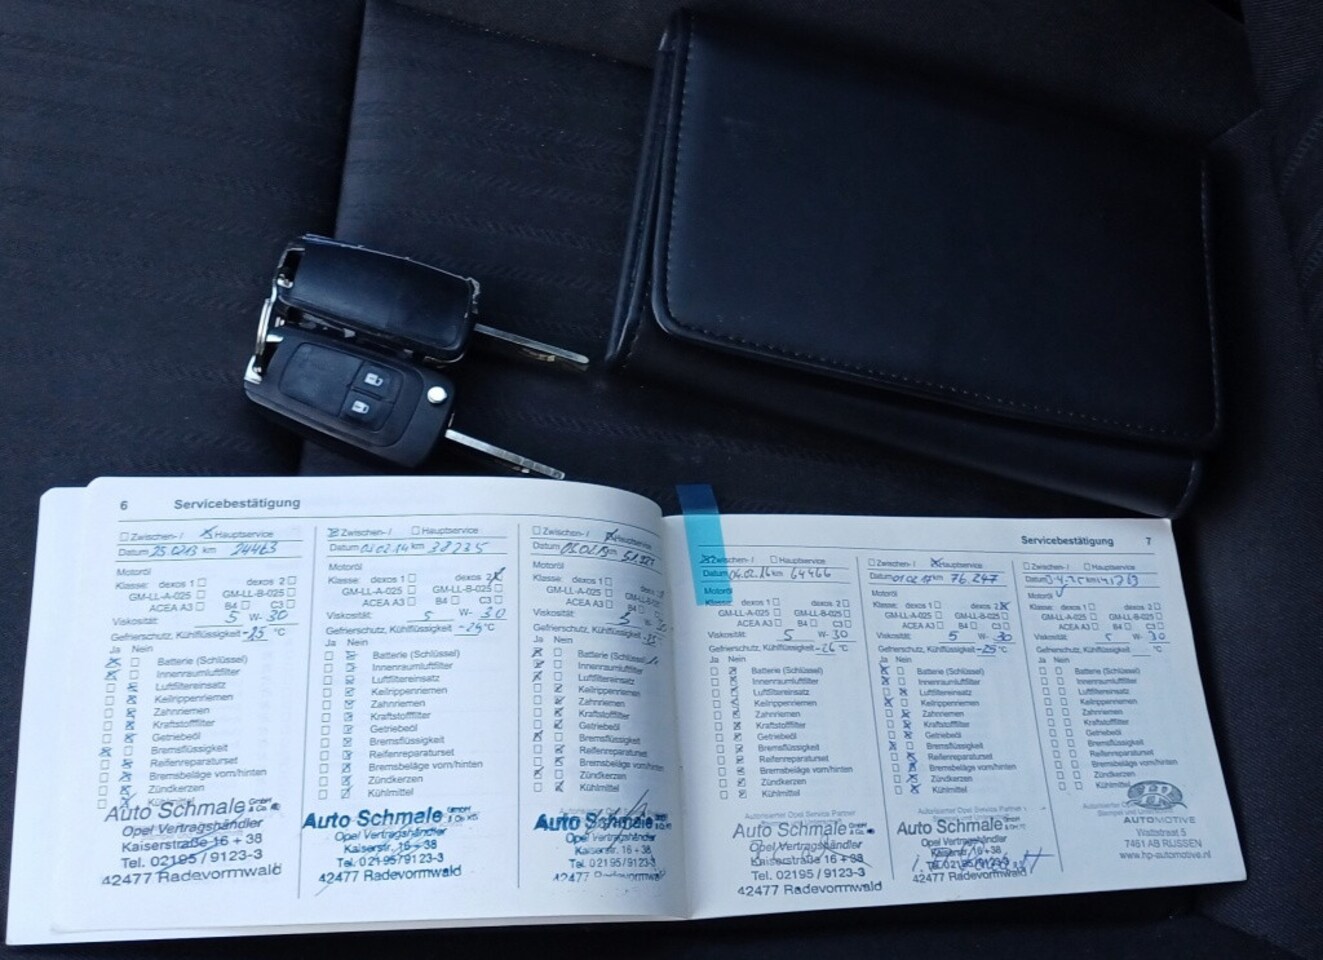 6 Servicebestätigung
Zwischen- / Hauptservice
Datum 25.02.13 km 24463
Motoröl
Klasse: dexos 1 dexos 2
GM-LL-A-025 GM-LL-B-025
ACEA A3 B4 C3
Viskosität: 5 W- 30
Gefrierschutz, Kühlflüssigkeit -25 °C
Ja Nein
Batterie (Schlüssel)
Innenraumluftfilter
Luftfiltereinsatz
Keilrippenriemen
Zahnriemen
Kraftstofffilter
Getriebeöl
Bremsflüssigkeit
Reifenreparaturset
Bremsbeläge vorn/hinten
Zündkerzen
Auto Schmale GmbH & Co. KG
Opel Vertragshändler
Kaiserstraße 16 + 38
Tel. 02195 / 9123-3
42477 Radevormwald
Zwischen- / Hauptservice
Datum 03.02.14 km 38235
Motoröl
Klasse: dexos 1 dexos 2
GM-LL-A-025 GM-LL-B-025
ACEA A3 B4 C3
Viskosität: 5 W- 30
Gefrierschutz, Kühlflüssigkeit
Ja Nein
Batterie (Schlüssel)
Innenraumluftfilter
Luftfiltereinsatz
Keilrippenriemen
Zahnriemen
Kraftstofffilter
Getriebeöl
Bremsflüssigkeit
Reifenreparaturset
Bremsbeläge vorn/hinten
Zündkerzen
Kühlmittel
Auto Schmale GmbH & Co. KG
Opel Vertragshändler
Kaiserstr. 16 + 38
Tel. 02195/9123-3
42477 Radevormwald
Zwischen- / Hauptservice
Datum
Motoröl
Klasse: dexos 1
GM-LL-A-025
ACEA A3 B4
Viskosität: 5
Gefrierschutz, Kühlflüssigkeit
Ja Nein
Batterie (Schlüssel)
Innenraumluftfilter
Luftfiltereinsatz
Keilrippenriemen
Zahnriemen
Kraftstofffilter
Getriebeöl
Bremsflüssigkeit
Reifenreparaturset
Bremsbeläge vorn/hinten
Zündkerzen
Kühlmittel
Auto Schmale
Opel Vertragshändler
Kaiserstr. 16 + 38
Tel. 02195/9123-3
Radevormwald
Servicebestätigung 7
Zwischen- / Hauptservice
Datum 04.02.16 km 64466
Motoröl
Klasse: dexos 1 dexos 2
GM-LL-A-025 GM-LL-B-025
ACEA A3 B4 C3
Viskosität: 5 W- 30
Gefrierschutz, Kühlflüssigkeit -26 °C
Ja Nein
Batterie (Schlüssel)
Innenraumluftfilter
Luftfiltereinsatz
Keilrippenriemen
Zahnriemen
Kraftstofffilter
Getriebeöl
Bremsflüssigkeit
Reifenreparaturset
Bremsbeläge vorn/hinten
Zündkerzen
Kühlmittel
Autorisierter Opel Service Partner
Auto Schmale GmbH & Co. KG
Opel Vertragshändler
Kaiserstraße 16 + 38
Tel. 02195 / 9123-3
42477 Radevormwald
Zwischen- / Hauptservice
Datum km 76.247
Motoröl
Klasse: dexos 1 dexos 2
GM-LL-A-025 GM-LL-B-025
ACEA A3 B4 C3
Viskosität: 5 W- 30
Gefrierschutz, Kühlflüssigkeit -25 °C
Ja Nein
Batterie (Schlüssel)
Innenraumluftfilter
Luftfiltereinsatz
Keilrippenriemen
Zahnriemen
Kraftstofffilter
Getriebeöl
Bremsflüssigkeit
Reifenreparaturset
Bremsbeläge vorn/hinten
Zündkerzen
Kühlmittel
Autorisierter Opel Service Partner
Auto Schmale
Opel Vertragshändler
Kaiserstr. 16 + 38
Tel. 02195/9123-3
42477 Radevormwald
Zwischen- / Hauptservice
Datum
Motoröl
Klasse: dexos 1 dexos 2
GM-LL-A-025 GM-LL-B-025
ACEA A3 B4 C3
Viskosität: 5 W- 30
Gefrierschutz, Kühlflüssigkeit °C
Ja Nein
Batterie (Schlüssel)
Innenraumluftfilter
Luftfiltereinsatz
Keilrippenriemen
Zahnriemen
Kraftstofffilter
Getriebeöl
Bremsflüssigkeit
Reifenreparaturset
Bremsbeläge vorn/hinten
Zündkerzen
Kühlmittel
AUTOMOTIVE
Wattstraat 5
7461 AB RIJSSEN
www.hp-automotive.nl